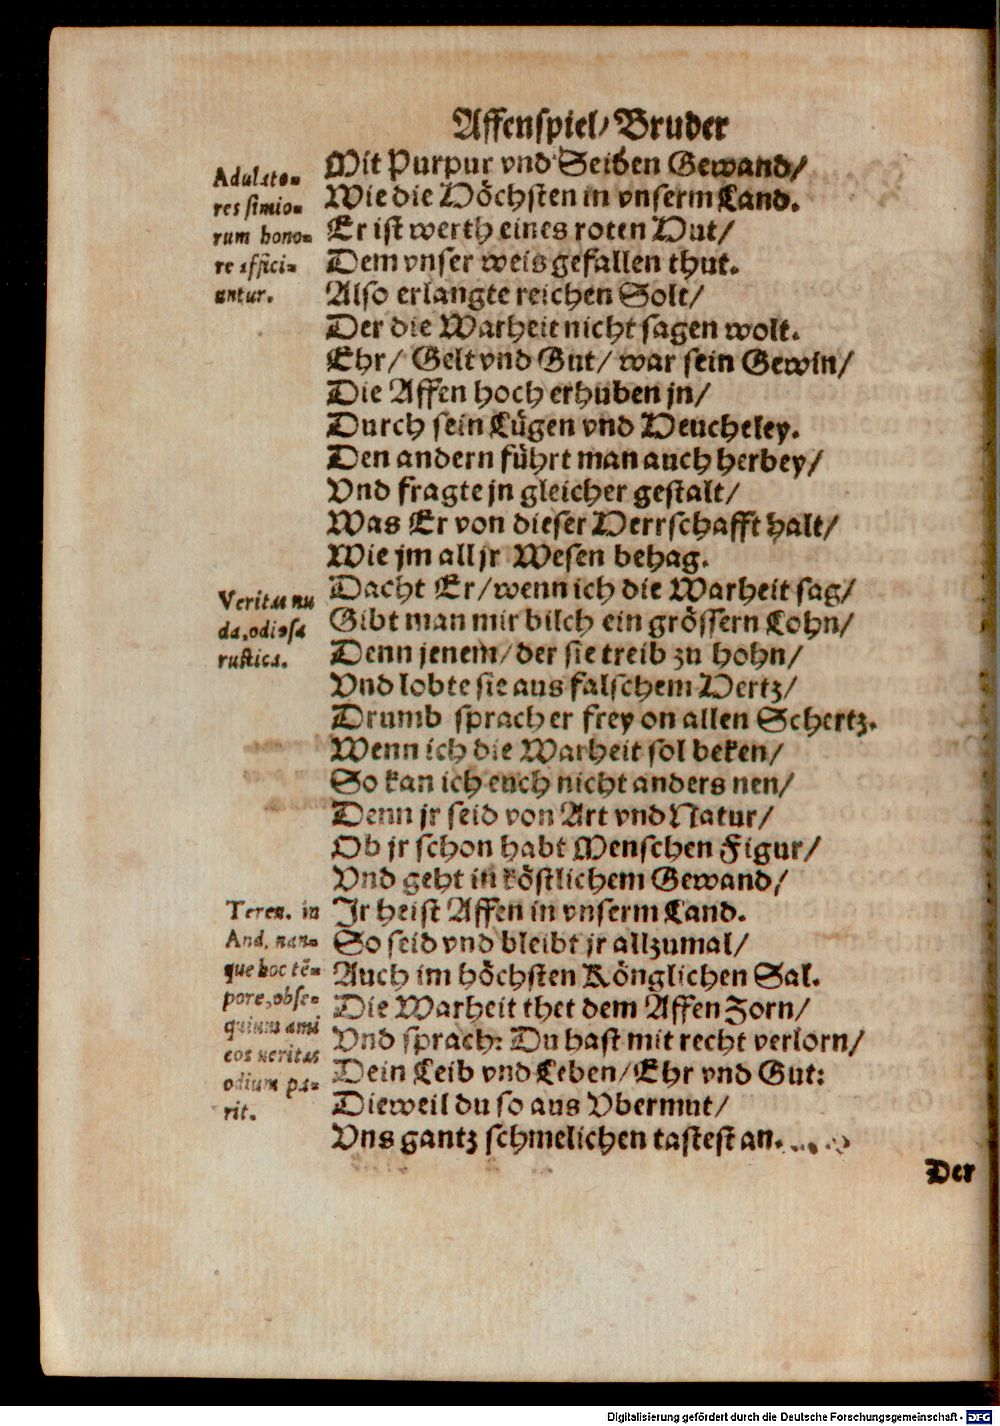 Affenspiel/ Bruder
Adulato-
res simio-
rum hono-
re affici-
untur.
Mit Purpur vnd Seiden Gewand/
Wie die Höchsten in vnserm Land.
Er ist werth eines roten Hut/
Dem vnser weis gefallen thut.
Also erlangte reichen Solt/
Der die Warheit nicht sagen wolt.
Ehr/ Gelt vnd Gut/ war sein Gewin/
Die Affen hoch erhuben jn/
Durch sein Lügen vnd Heucheley.
Den andern führt man auch herbey/
Vnd fragte jn gleicher gestalt/
Was Er von dieser Herrschafft halt/
Wie jm all jr Wesen behag.
Veritas nu
da, odiosa
rustica.
Dacht Er/ wenn ich die Warheit sag/
Gibt man mir bilch ein grössern Lohn/
Denn jenem/ der sie treib zu hohn/
Vnd lobte sie aus falschem Hertz/
Drumb sprach er frey on allen Schertz.
Wenn ich die Warheit sol beken/
So kan ich euch nicht anders nen/
Denn jr seid von Art vnd Natur/
Ob jr schon habt Menschen Figur/
Vnd geht in köstlichem Gewand/
Teren. in
And. nan-
que hoc tẽ-
pore, obse-
quium ami
cos ueritas
odium pa-
rit.
Jr heist Affen in vnserm Land.
So seid vnd bleibt jr allzumal/
Auch im höchsten Könglichen Sal.
Die Warheit thet dem Affen Zorn/
Vnd sprach: Du hast mit recht verlorn/
Dein Leib vnd Leben/ Ehr vnd Gut:
Dieweil du so aus Vbermut/
Vns gantz schmelichen tastest an.
Der
Digitalisierung gefördert durch die Deutsche Forschungsgemeinschaft - DFG